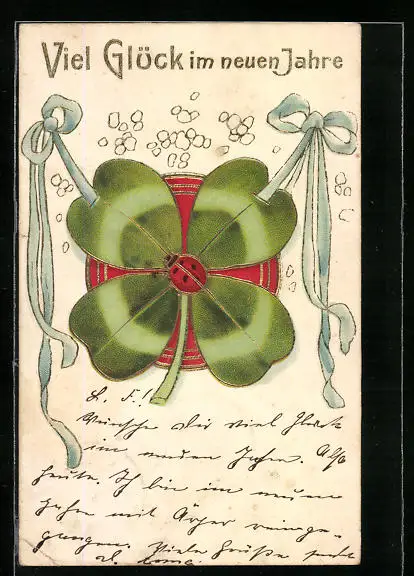 Viel Glück im neuen Jahre
L. F.!
Wünsche Dir viel Glück
im neuen Jahre. Also
heute. Ich bin im neuen
Jahre mit Ärger reinge-
gangen. Viele Grüße